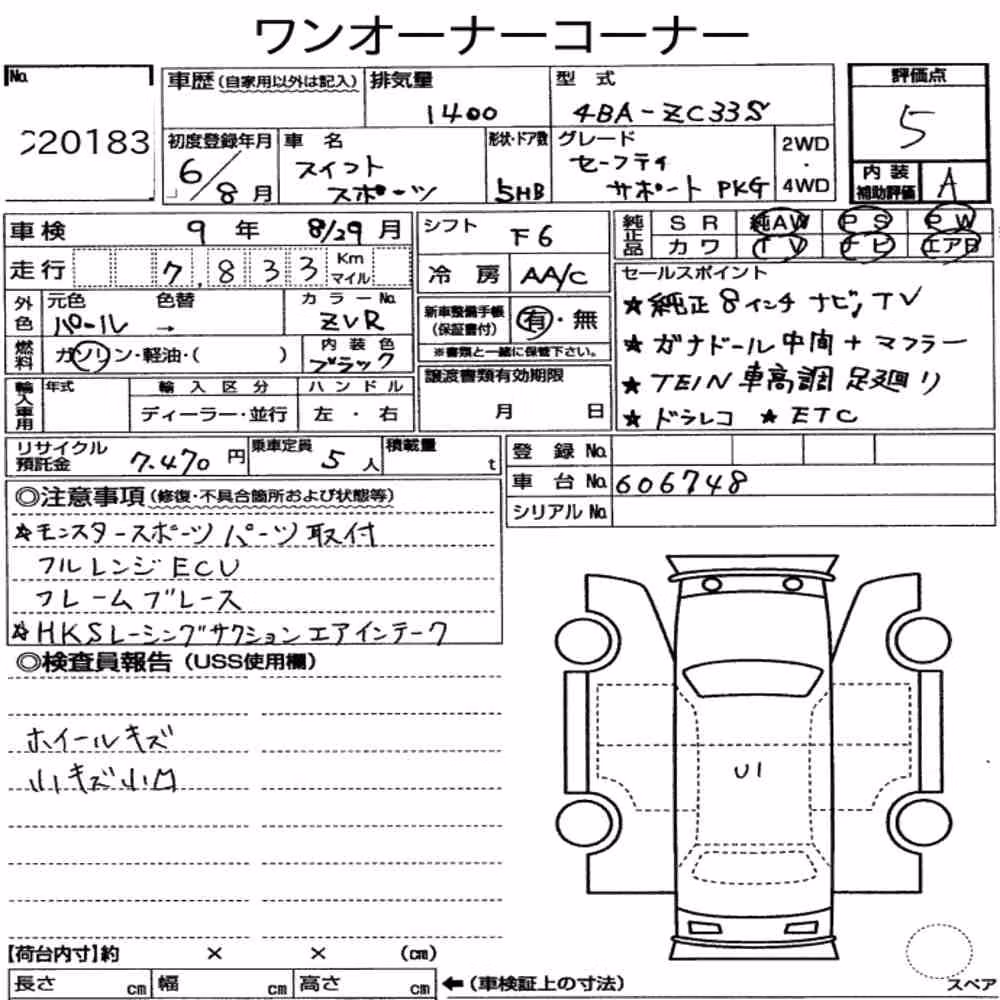 ワンオーナーコーナー
No.
20183
車歴(自家用以外は記入)
排気量
1400
型式
4BA-ZC33S
評価点
5
内装補助評価
A
初度登録年月
6/8月
車名
スイフト
スポーツ
形状・ドア数
5HB
グレード
セーフティ
サポート PKG
2WD
・
4WD
車検 9年 8/29月
走行 7,833 Km マイル
シフト F6
冷房 AA/C
純正品
SR 純AW PS PW
カワ TV ナビ エアB
セールスポイント
★純正8インチ ナビ,TV
★ガナドール中間+マフラー
★TEIN車高調 足廻り
★ドラレコ ★ETC
外色
元色 色替
パール →
カラーNo.
ZVR
燃料 ガソリン・軽油・( )
内装色
ブラック
新車整備手帳
(保証書付)
有・無
※書類と一緒に保管下さい。
輸入車用
年式
輸入区分
ディーラー・並行
ハンドル
左・右
譲渡書類有効期限
月 日
リサイクル預託金 7.470円
乗車定員 5人
積載量 t
登録No.
車台No. 606748
シリアルNo.
◎注意事項(修復・不具合箇所および状態等)
☆モンスタースポーツ パーツ取付
フルレンジECU
フレームブレース
☆HKSレーシングサクション エアインテーク
◎検査員報告(USS使用欄)
ホイールキズ
小キズ小凹
U1
【荷台内寸】約 × × (cm)
長さ cm 幅 cm 高さ cm ←(車検証上の寸法)
スペア